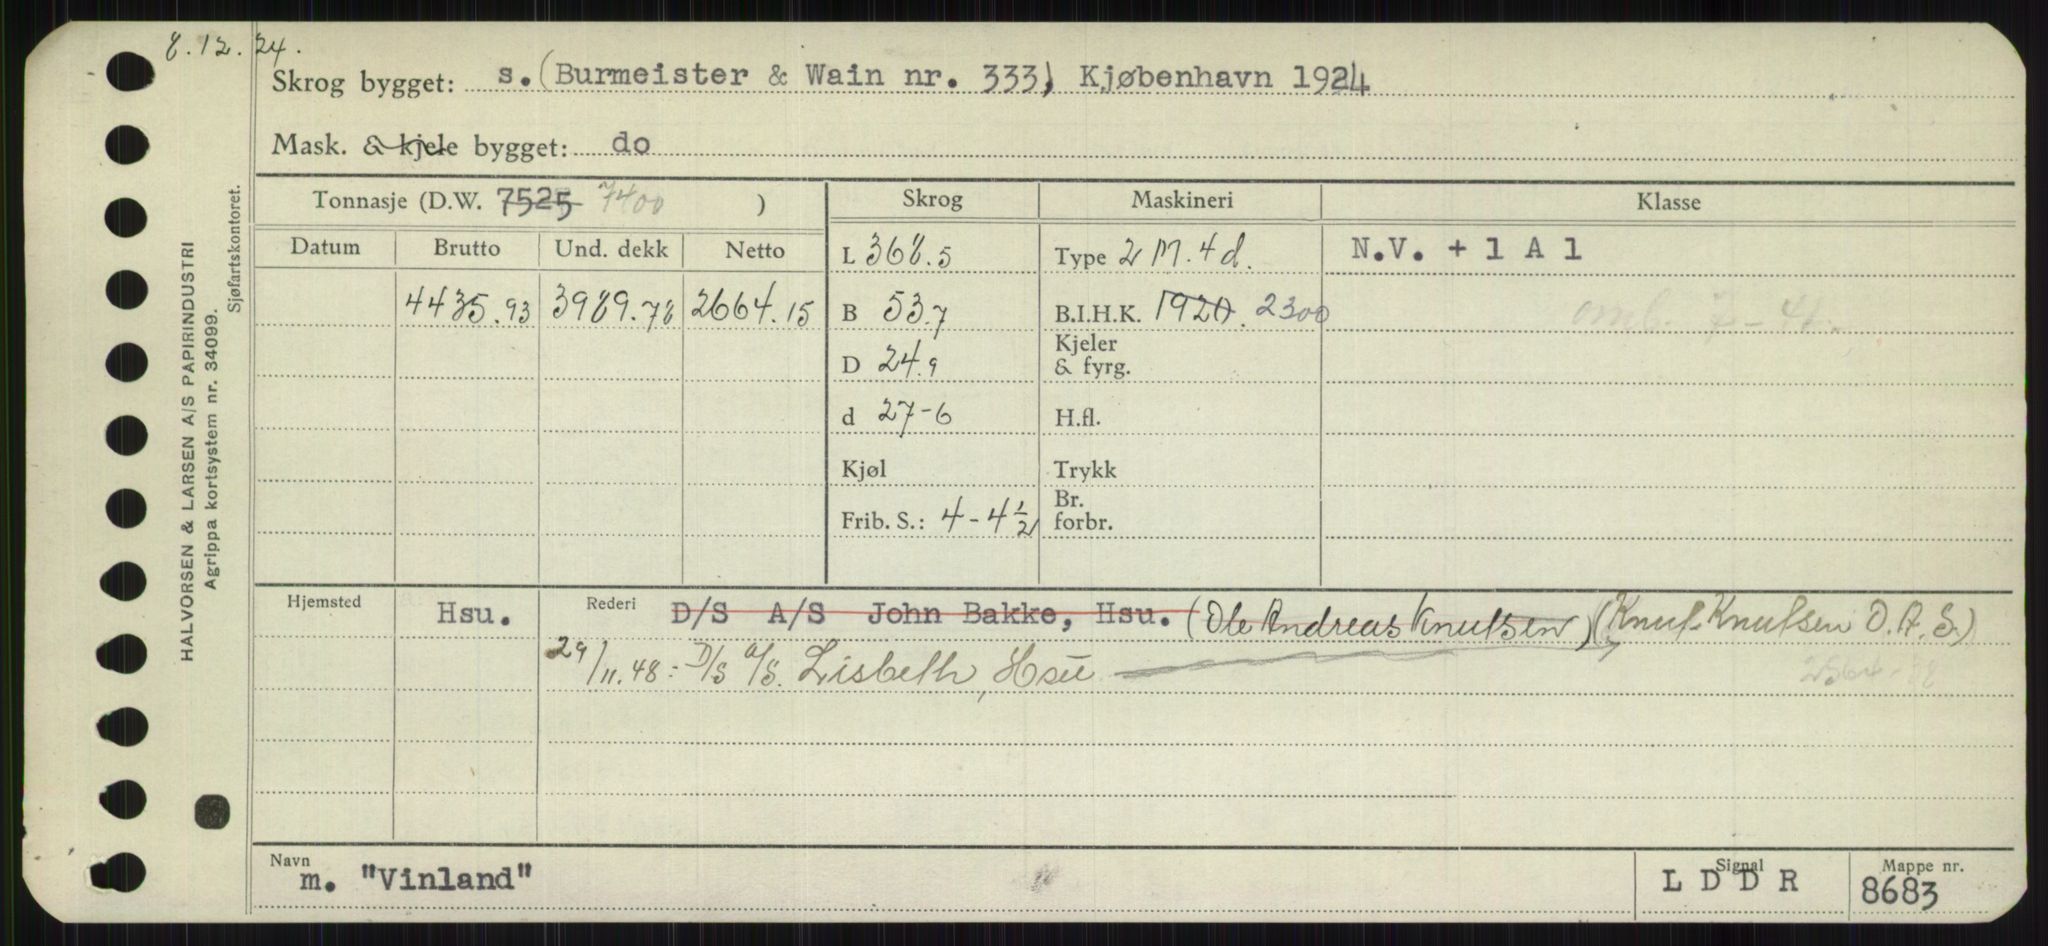 8.12.24.
Skrog bygget: s. (Burmeister & Wain nr. 333, Kjøbenhavn 1924
Mask. & kjele bygget: do
Tonnasje (D.W. 7525 7400 )
Skrog
Maskineri
Klasse
Datum Brutto Und. dekk Netto
L 368.5
Type 2 M. 4 d.
N.V. + 1 A 1
4435.93 3989.78 2664.15
B 53.7
B.I.H.K. 1920. 2300
omb. 7-41.
D 24.9
Kjeler & fyrg.
d 27-6
H.fl.
Kjøl
Trykk
Frib. S.: 4-4½
Br. forbr.
Hjemsted Hsu.
Rederi D/S A/S John Bakke, Hsu. (Ole Andreas Knutsen) (Knut Knutsen O.A.S.)
29/11.48.- D/S A/S. Lisbeth, Hsu
Navn
m. "Vinland"
Signal
L D D R
Mappe nr.
8683
HALVORSEN & LARSEN A/S PAPIRINDUSTRI
Agrippa kortsystem nr. 34099.
Sjøfartskontoret.